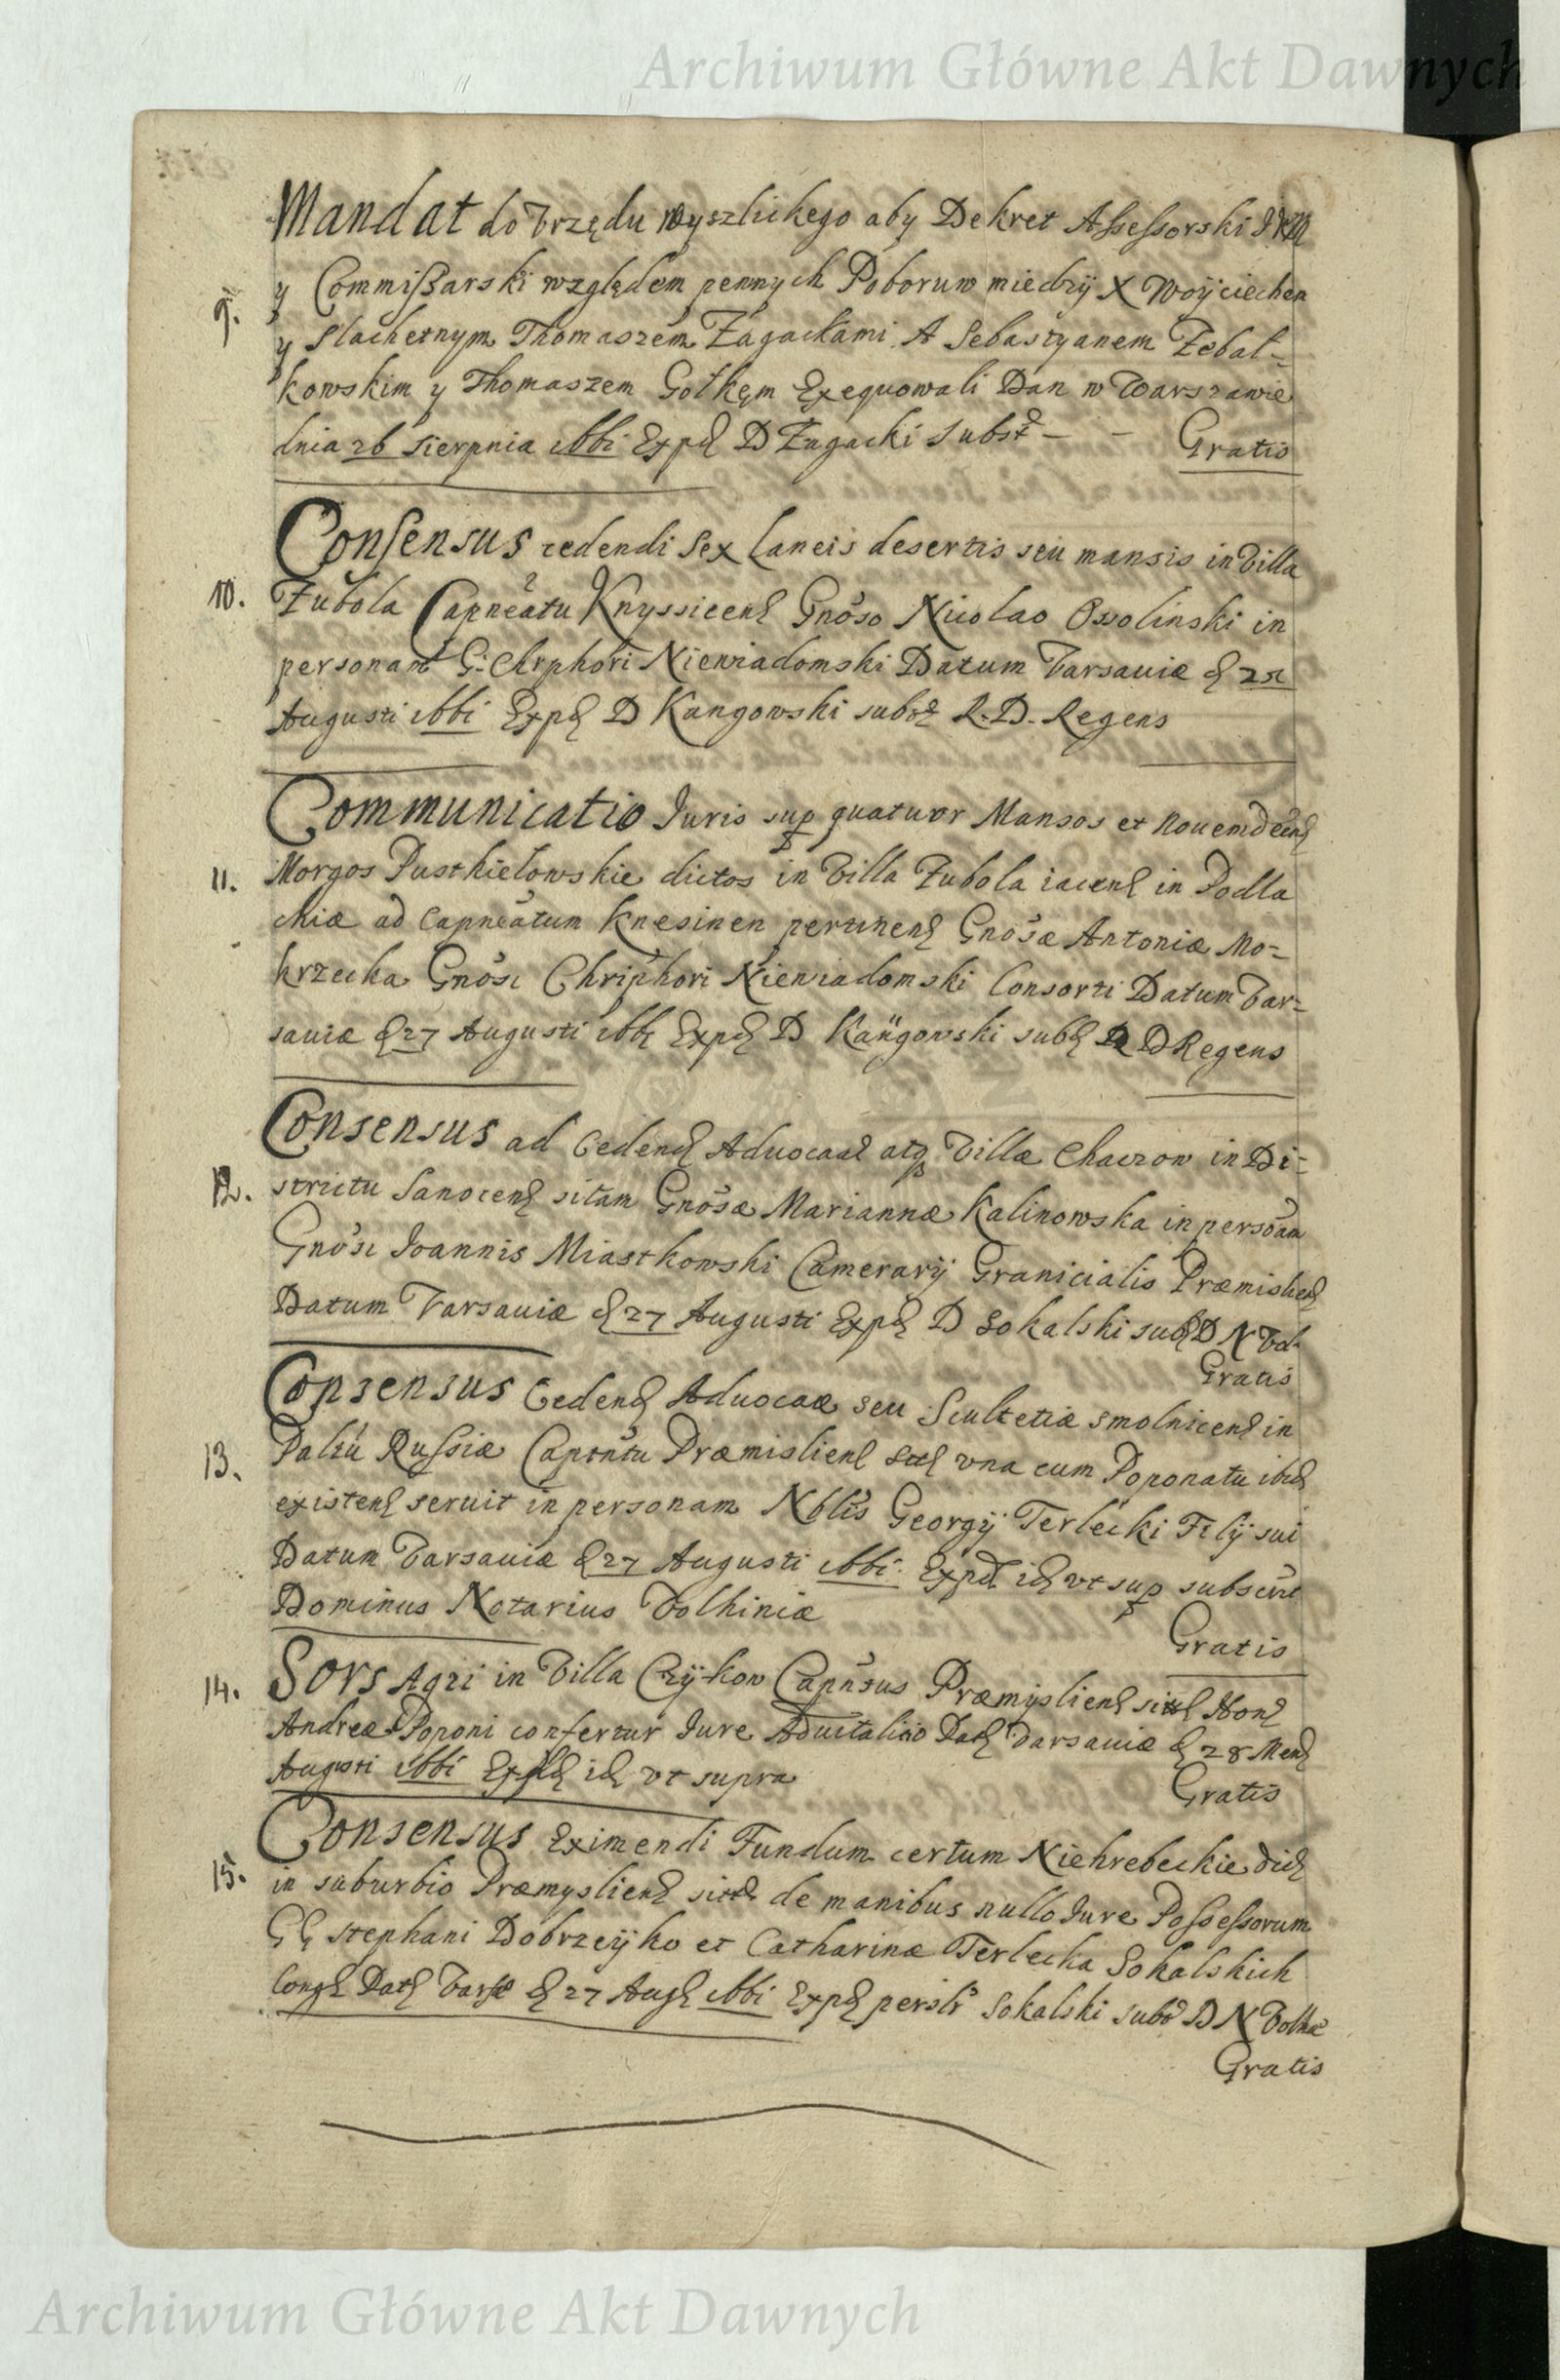 Archiwum Główne Akt Dawnych
Mandat do Vrzędu Wyszlickego aby Dekret Assessorski JKM
9. y Commissarski względem pennych Poboruw miedzÿ X Woÿciechem
y Slachetnym Thomaszem Zagackami A Sebastyanem Zebal-
kowskim y Thomaszem Gołkęm Exequowali Dan w Warszawie
dnia 26 Sierpnia 1661 Exped D Zagacki Subst - - Gratis
Consensus cedendi Sex Laneis desertis seu mansis in Villa
10. Zubola Capneatu Knyssicens Gnoso Nicolao Ossolinski in
personam G: Chrphori Niewiadomski Datum Varsaviæ d 21
Augusti 1661 Exped D Kangowski subst R. D. Regens
Communicatio Juris sup quatuor Mansos et nouemdecem
11. Morgos Pusthiełowskie dictos in Villa Zubola iacens in Podla
chiæ ad Capneatum Knesinen pertinens Gnosæ Antoniæ Mo-
krzecka Gnosi Chriphori Niewiadomski Consorti Datum Var-
saviæ d 27 Augusti 1661 Exped D Kangowski subs R D Regens
Consensus ad Cedend Aduocaae atq Villæ Chaczow in Di-
12. strictu Sanocens sitam Gnosæ Mariannæ Kalinowska in persoam
Gnosi Joannis Miastkowski Camerarÿ Granicialis Præmisliens
Datum Varsaviæ d 27 Augusti Exped D Sokalski subs D N Vol.
Gratis
Consensus Cedend Aduocaæ seu Scultetiæ Smolnicens in
13. Paltu Russiæ Captntu Præmisliens una cum Poponatu ibid
existens seruit in personam Nblis Georgÿ Terlecki Filÿ sui
Datum Varsaviæ d 27 Augusti 1661. Exped id vt sup subscri
Dominus Notarius Volhiniæ
Gratis
14. Sors Agri in Villa Czÿkow Capntus Præmÿsliens Hon
Andreæ Poponi confertur Jure Aduitalitio Dat Varsaviæ d 28 Mens
Augusti 1661 Exped id vt supra
Gratis
Consensus Eximendi Fundum certum Niehrebeckie dict
15. in suburbio Præmysliens de manibus nullo Jure Possessorum
GG Stephani Dobrzeÿko et Catharinæ Terlecka Sokalskich
Dat d 27 Aug 1661 Exped Sokalski subs D N Volhæ
Gratis
Archiwum Główne Akt Dawnych